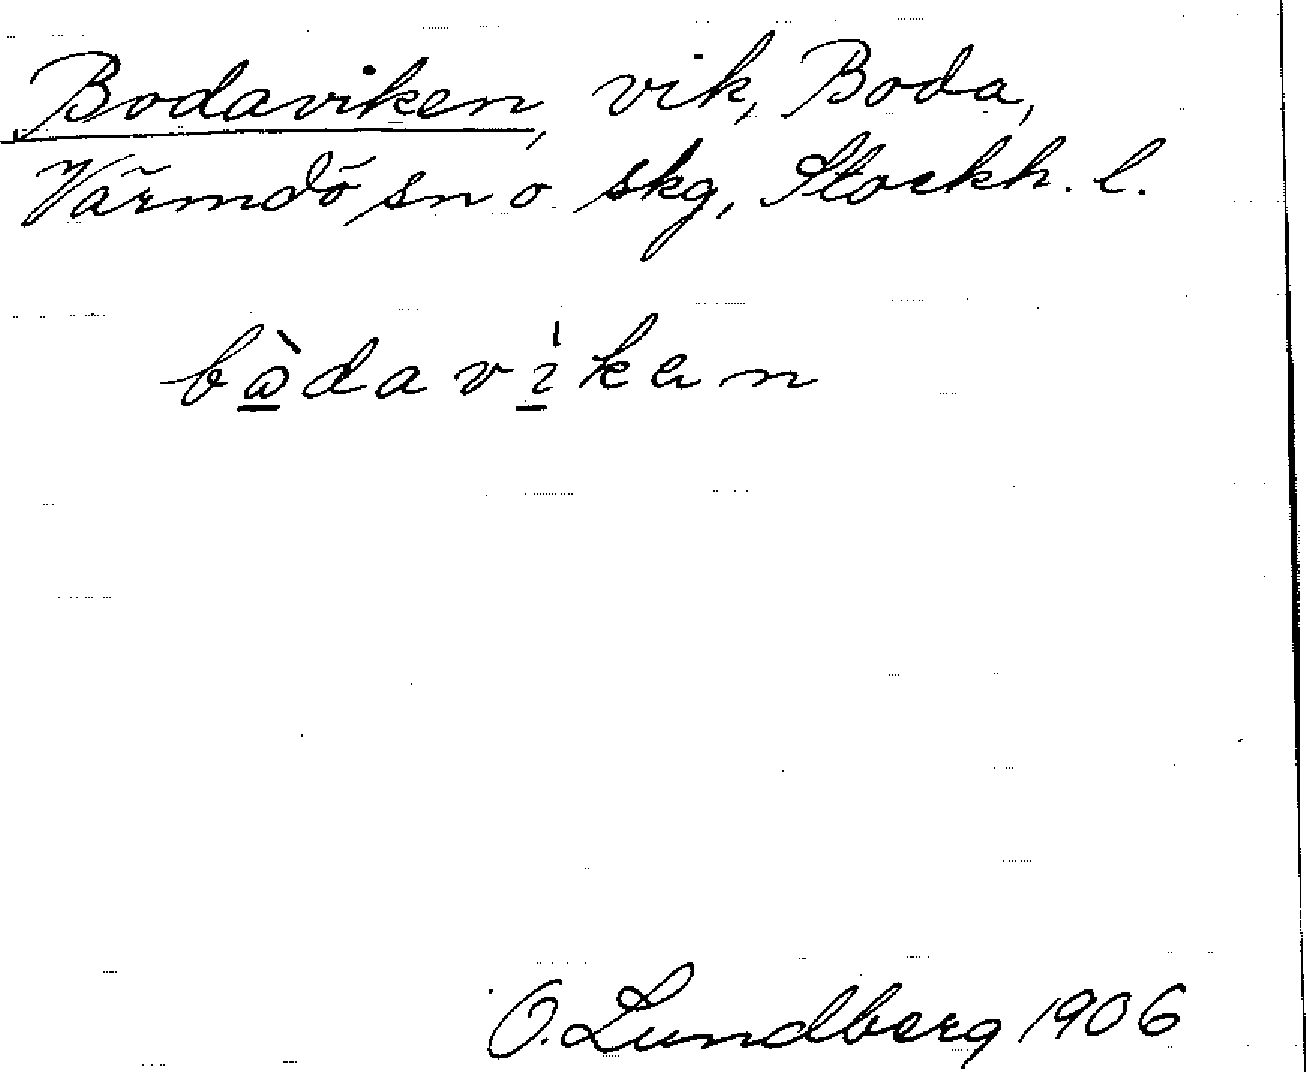 Bodaviken, vik, Boda,
Värmdö sn o. skg, Stockh. l.
bὼdavi̍ken
O. Lundberg 1906